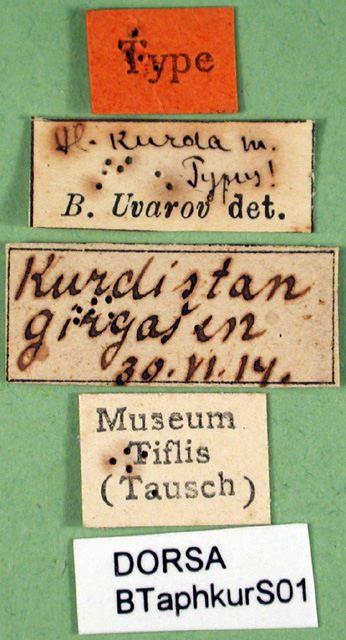 Type
Kurda m.
Typus!
B. Uvarov det.
Kurdistan
girgašen
30.VI.14.
Museum
Tiflis
(Tausch)
DORSA
BTaphkurS01